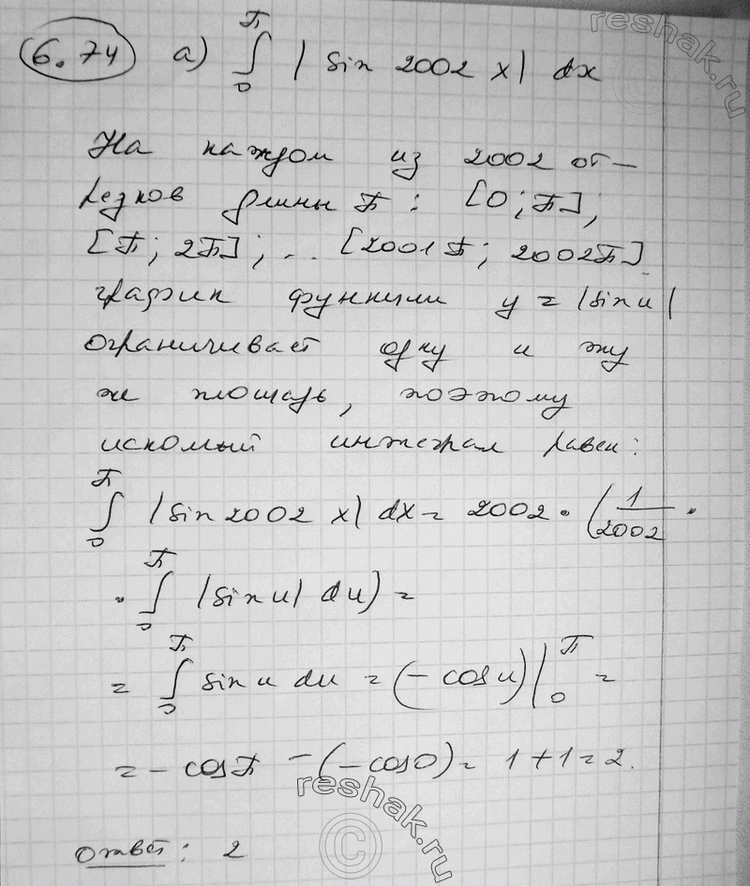 reshak.ru
6.74 а) ∫₀^π | sin 2002 x| dx
На каждом из 2002 от-
резков длины π: [0; π];
[π; 2π]; .. [2001π; 2002π]
график функции y = |sin u|
ограничивает одну и ту
же площадь, поэтому
искомый интеграл равен:
∫₀^π |sin 2002 x| dx = 2002 · (1/2002 ·
· ∫₀^π |sin u| du) =
= ∫₀^π sin u du = (- cos u)|₀^π =
= - cos π - (- cos 0) = 1 + 1 = 2.
reshak.ru
©
Ответ: 2
reshak.ru